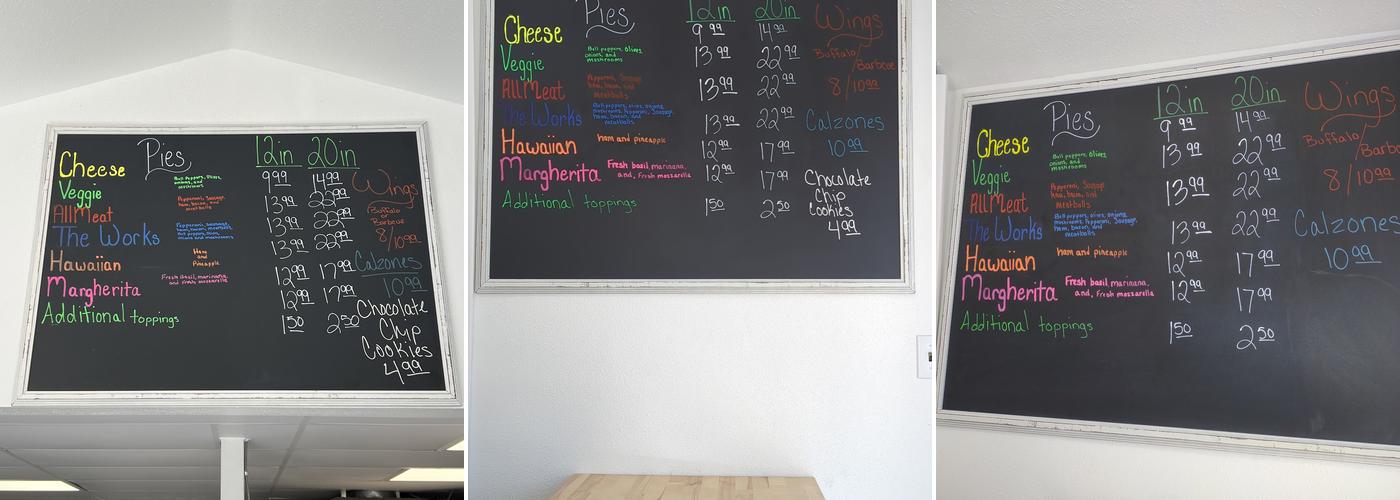 Pies 12in 20in
Cheese 9 99 14 99
Veggie Bell peppers, Olives, onions, and mushrooms 13 99 22 99
All Meat Pepperoni, Sausage, ham, bacon, and meatballs 13 99 22 99
The Works 13 99 22 99
Hawaiian Ham and Pineapple 12 99 17 99
Margherita Fresh basil, marinara, and Fresh mozzarella 12 99 17 99
Additional toppings 1 50 2 50
Wings
Buffalo
or
Barbecue
8/10 99
Calzones
10 99
Chocolate
Chip
Cookies
4 99
Pies 12in 20in
Cheese 9 99 14 99
Veggie Bell peppers, Olives, onions, and mushrooms 13 99 22 99
All Meat Pepperoni, Sausage, ham, bacon, and meatballs 13 99 22 99
The Works Bell peppers, olives, onions, mushrooms, Pepperoni, Sausage, ham, bacon, and meatballs 13 99 22 99
Hawaiian ham and pineapple 12 99 17 99
Margherita Fresh basil, marinara, and, Fresh mozzarella 12 99 17 99
Additional toppings 1 50 2 50
Wings
Buffalo/Barbcue
8/10 99
Calzones
10 99
Chocolate
Chip
Cookies
4 99
Pies 12in 20in
Cheese 9 99 14 99
Veggie Bell peppers, Olives, onions, and mushrooms 13 99 22 99
All Meat Pepperoni, Sausage, ham, bacon, and meatballs 13 99 22 99
The Works Bell peppers, olives, onions, mushrooms, Pepperoni, Sausage, ham, bacon, and meatballs 13 99 22 99
Hawaiian ham and pineapple 12 99 17 99
Margherita Fresh basil, marinara, and, Fresh mozzarella 12 99 17 99
Additional toppings 1 50 2 50
Wings
Buffalo/Barbc
8/10 99
Calzones
10 99